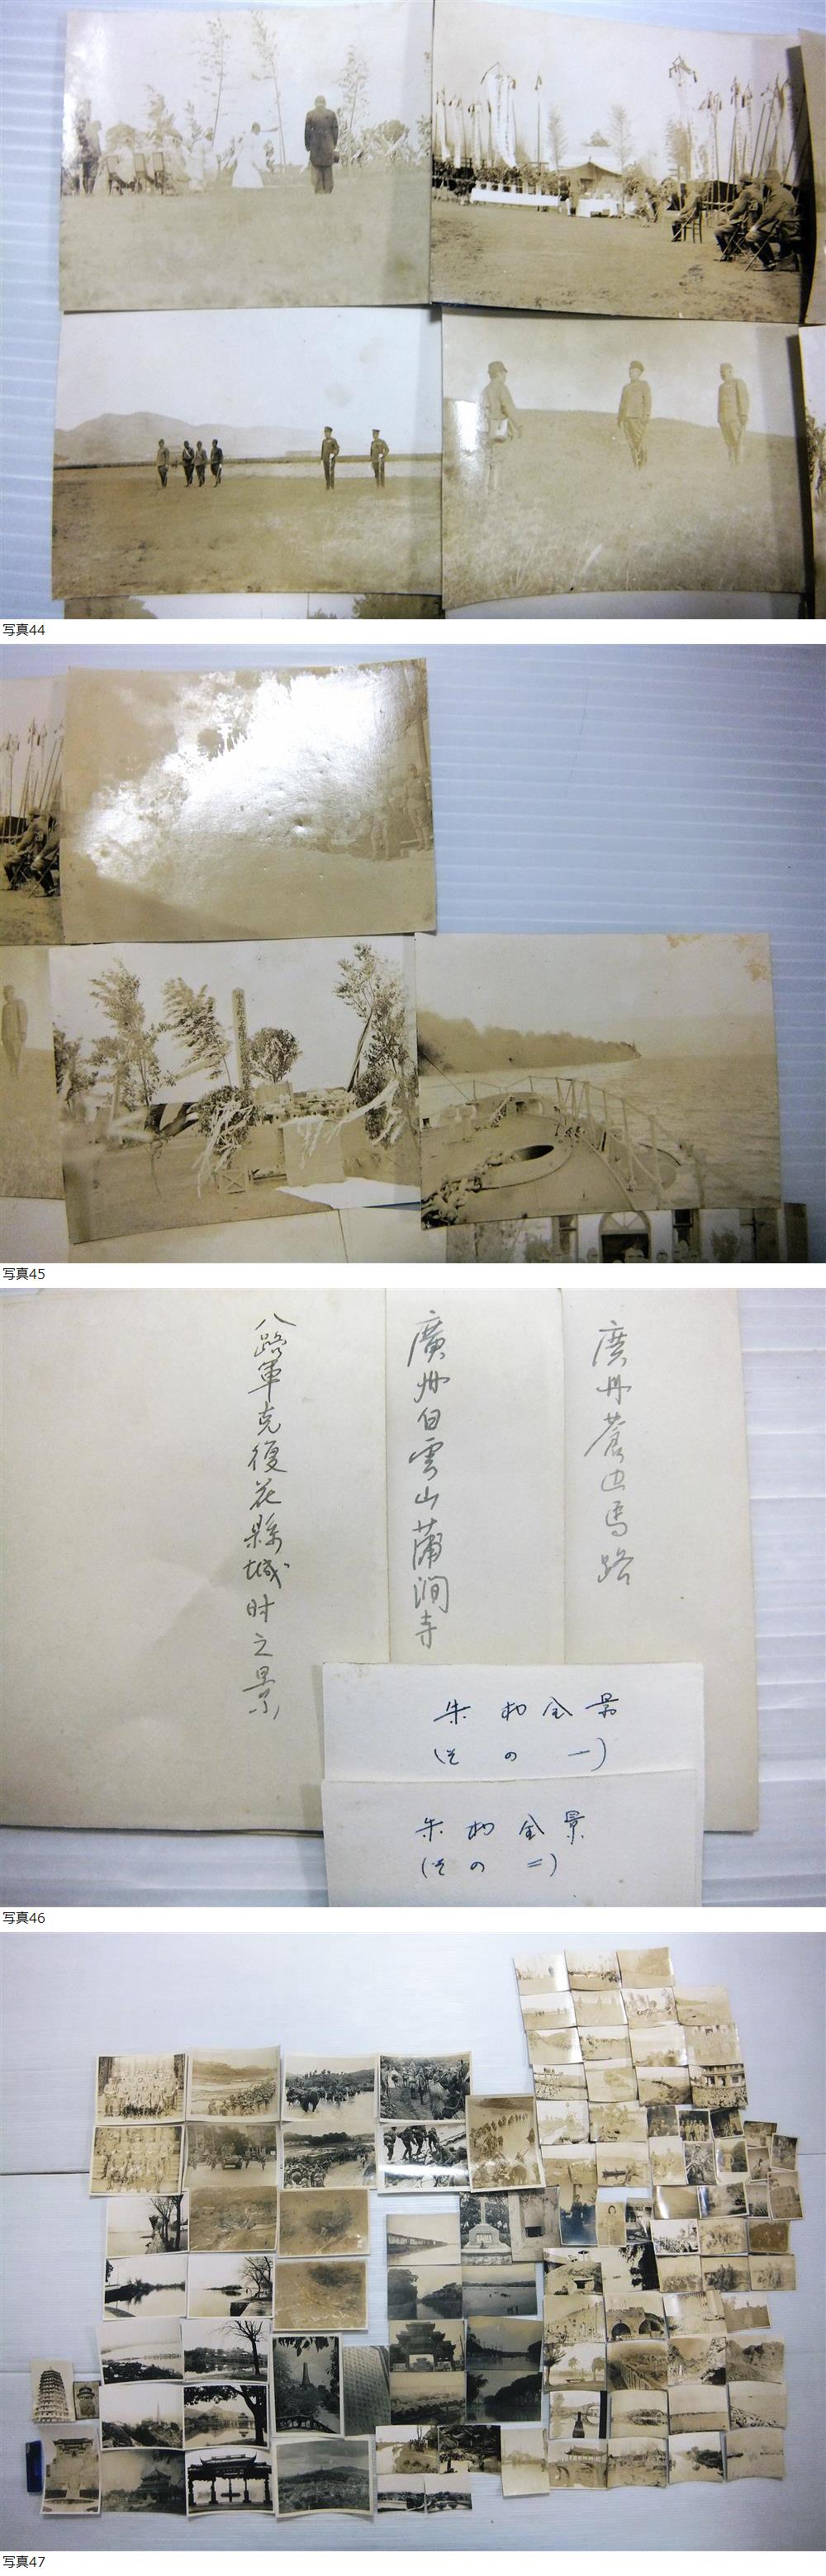 写真44
写真45
廣州蒼邊馬路
廣州白雲山蒲澗寺
八路軍克復花縣城时之景
朱初全景
(その一)
朱初全景
(その二)
写真46
写真47